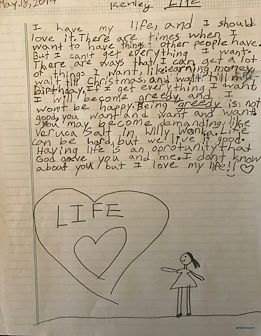 May.18,2014 Kenley LIFE
I have my life, and I should
love it. There are times when I
want to have things other people have.
But I can't get everything I want.
There are ways that I can get a lot
of things I want, like earning money,
wait till Christmas, and wait till my
birthday. If I get everything I want
I will become greedy and I
wont be happy. Being greedy is not
good, you want and want and want.
You may become demanding like
Veruca Salt in Willy Wonka. Life
can be hard, but we live it good.
Having life is an oprotunity that
God gave you and me. I don't know
about you, but I love my life!!
LIFE